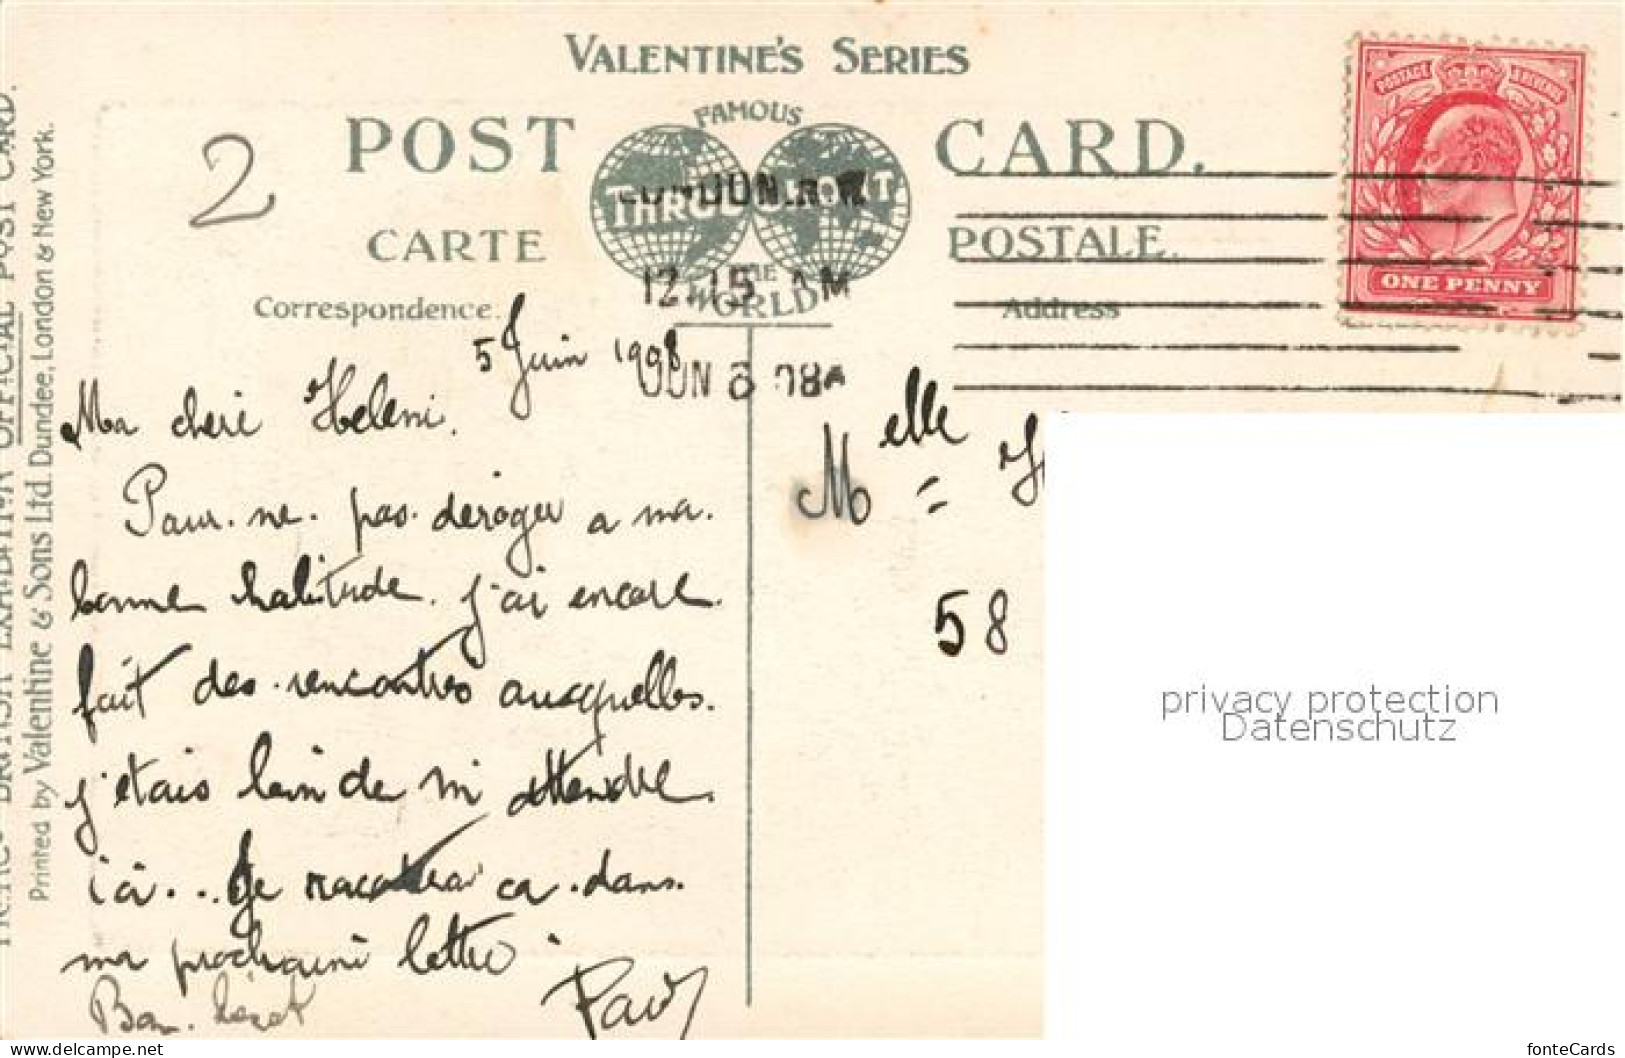 VALENTINE'S SERIES
FAMOUS
POST CARD.
THROUGHOUT
CARTE POSTALE.
THE
WORLD
Correspondence.
Address
POSTAGE & REVENUE
ONE PENNY
LONDON. N.W.
12.15 AM
JUN 6 08A
2
5 Juin 1908
Ma cheri Heleni.
Pour. ne. pas. deroger a ma.
bonne habitude. j'ai encore.
fait des. rencontres auxquelles.
j'etais loin de m'attendre.
ici... Je racontrai ca. dans.
ma prochaine lettre.
Bon.
Paul
Melle
58
OFFICIAL POST CARD.
Printed by Valentine & Sons Ltd. Dundee, London & New York.
privacy protection
Datenschutz
www.delcampe.net
fonteCards